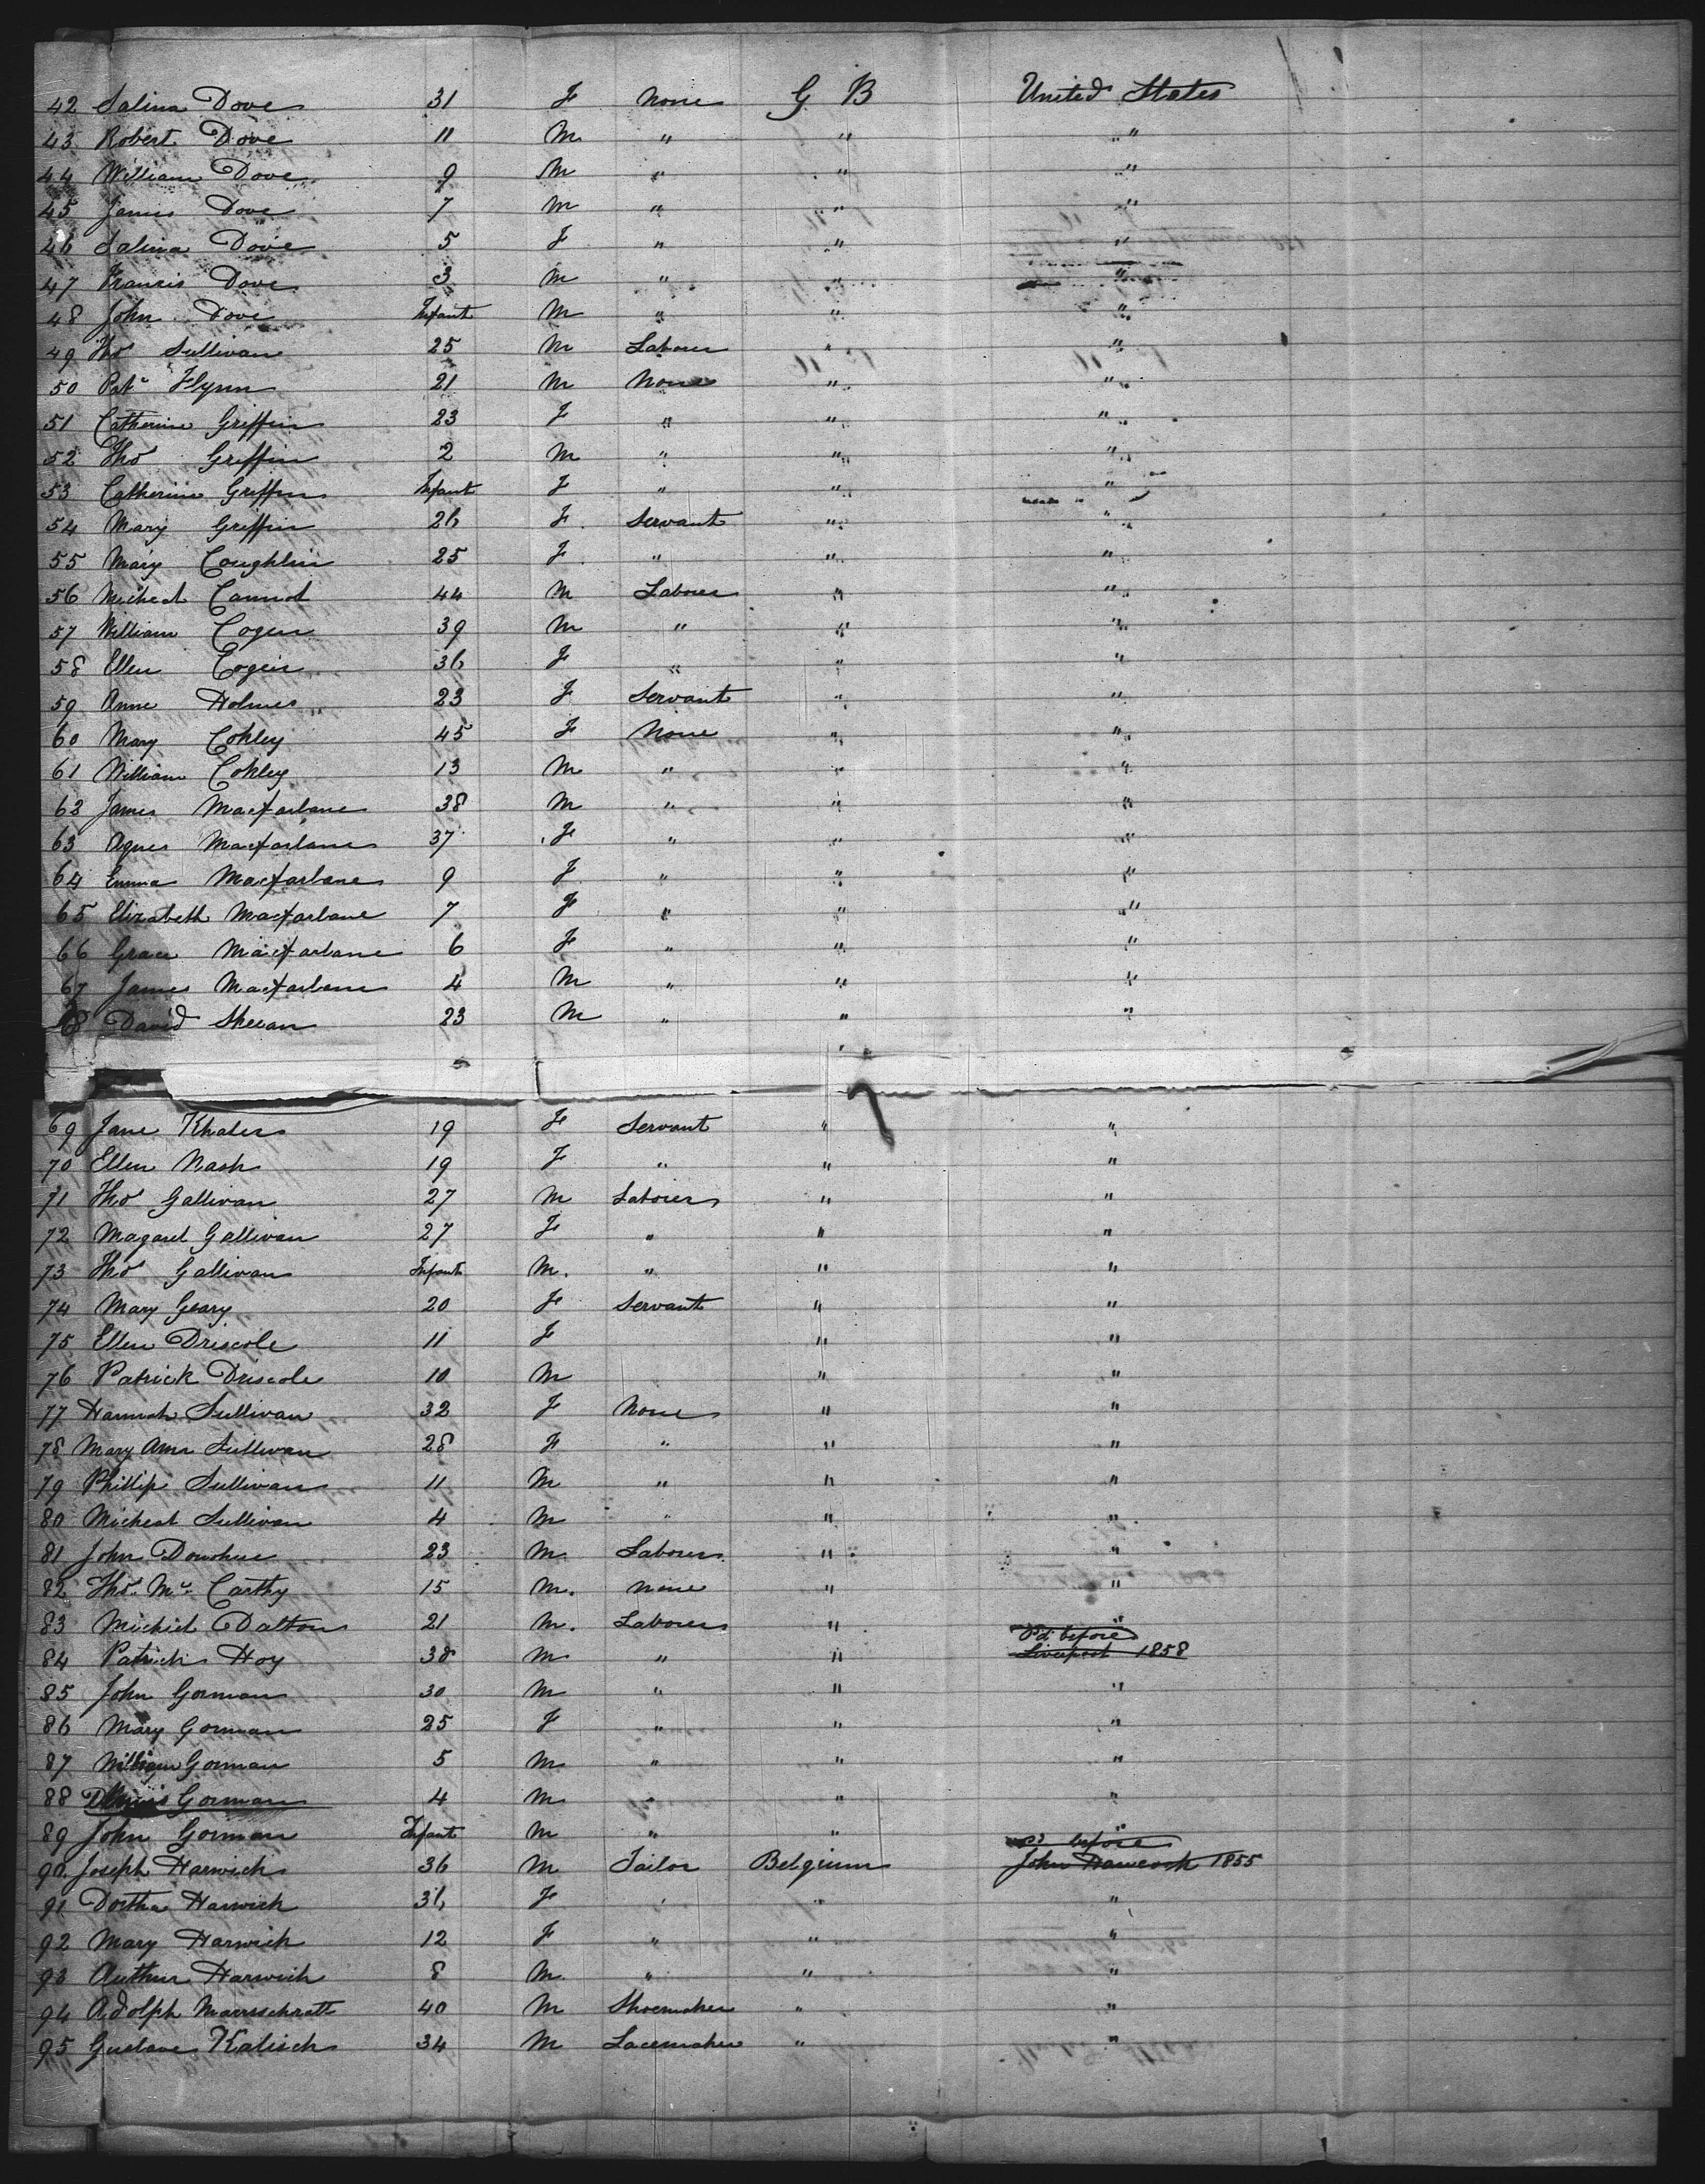 42 Salina Dove 31 F None G B United States
43 Robert Dove 11 M " " "
44 William Dove 9 M " " "
45 James Dove 7 M " " "
46 Salina Dove 5 F " " "
47 Francis Dove 3 M " " "
48 John Dove Infant M " " "
49 Thos Sullivan 25 M Laborer " "
50 Patk Flynn 21 M None " "
51 Catherine Griffin 23 F " " "
52 Thos Griffin 2 M " " "
53 Catherine Griffin Infant F " " "
54 Mary Griffin 26 F Servant " "
55 Mary Coughlin 25 F " " "
56 Micheal 44 M Laborer " "
57 William Cogen 39 M " " "
58 Ellen Cogen 36 F " " "
59 Anne Holmes 23 F Servant " "
60 Mary Cohley 45 F None " "
61 William Cohley 13 M " " "
62 James Macfarlane 38 M " " "
63 Agnes Macfarlane 37 F " " "
64 Emma Macfarlane 9 F " " "
65 Elizabeth Macfarlane 7 F " " "
66 Grace Macfarlane 6 F " " "
67 James Macfarlane 4 M " " "
68 David Sheean 23 M " " "
69 Jane 19 F Servant " "
70 Ellen Nash 19 F " " "
71 Thos Gallivan 27 M Laborer " "
72 Magaret Gallivan 27 F " " "
73 Thos Gallivan Infant M. " " "
74 Mary Geary 20 F Servant " "
75 Ellen Driscole 11 F " "
76 Patrick Driscole 10 M " "
77 Hannah Sullivan 32 F None " "
78 Mary Ann Sullivan 28 F " " "
79 Phillip Sullivan 11 M " " "
80 Micheal Sullivan 4 M " " "
81 John Donohue 23 M Laborer " "
82 Thos. Mc. Carthy 15 M. None " "
83 Michiel Dalton 21 M. Laborer " "
before
84 Patrick Hoy 38 M " " Liverpool 1858
85 John Gorman 30 M " " "
86 Mary Gorman 25 F " " "
87 William Gorman 5 M " " "
88 Dennis Gorman 4 M " " "
89 John Gorman Infant M " " "
before
90 Joseph Harwich 36 M Tailor Belgium John 1855
91 Dortha Harwich 36 F " " "
92 Mary Harwich 12 F " " "
93 Authur Harwich 8 M " " "
94 Adolph 40 M Shoemaker " "
95 Gustave Kalisch 34 M Lacemaker " "